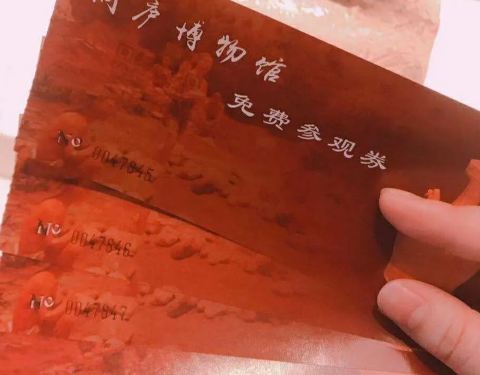 庐博物馆
免费参观券
No 0047845
No 0047846
No 0047847